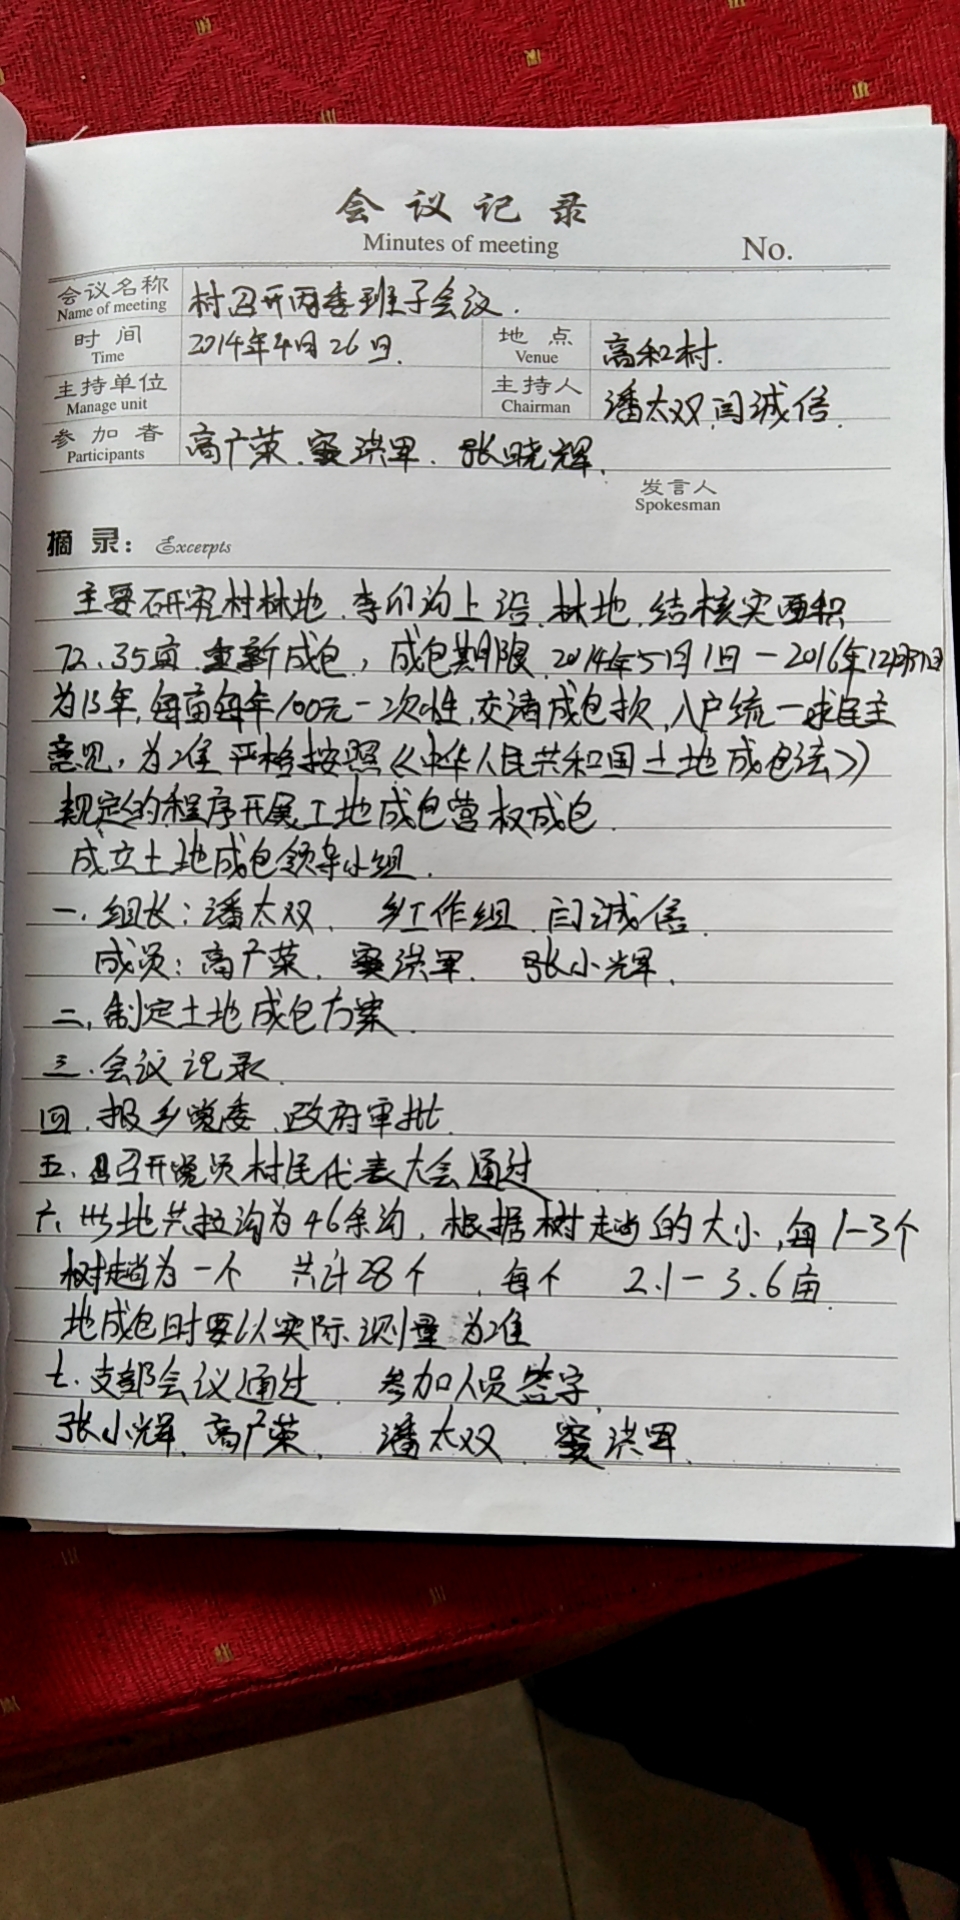 会议记录
Minutes of meeting
No.
会议名称 村召开两委班子会议.
Name of meeting
时间 2014年4月26日. 地点 高和村.
Time Venue
主持单位 主持人 潘太双,闫诚信.
Manage unit Chairman
参加者 高广荣、窦洪军、张晓辉.
Participants
发言人
Spokesman
摘录: Excerpts
主要研究村林地、李印沟上沿、林地、结核实面积
72、35亩、重新成包,成包期限、2014年5月1日一2016年12月31日
为15年,每亩每年100元一次性,交清成包款,入户统一求民主
意见,为准 严格按照《中华人民共和国土地成包法》
规定的程序开展工地成包营权成包.
成立土地成包领导小组.
一、组长:潘太双、 乡工作组、闫诚信.
成员:高广荣、窦洪军、 张小辉.
二、制定土地成包方案.
三、会议记录.
四、报乡党委、政府审批.
五、召开党员村民代表大会通过
六、地共拉沟为46条沟,根据树趟的大小,每1-3个
树趟为一个 共计28个 、每个 2.1-3.6亩.
地成包时要以实际测量为准
七、支部会议通过、 参加人员签字
张小辉、高广荣、 潘太双 窦洪军.